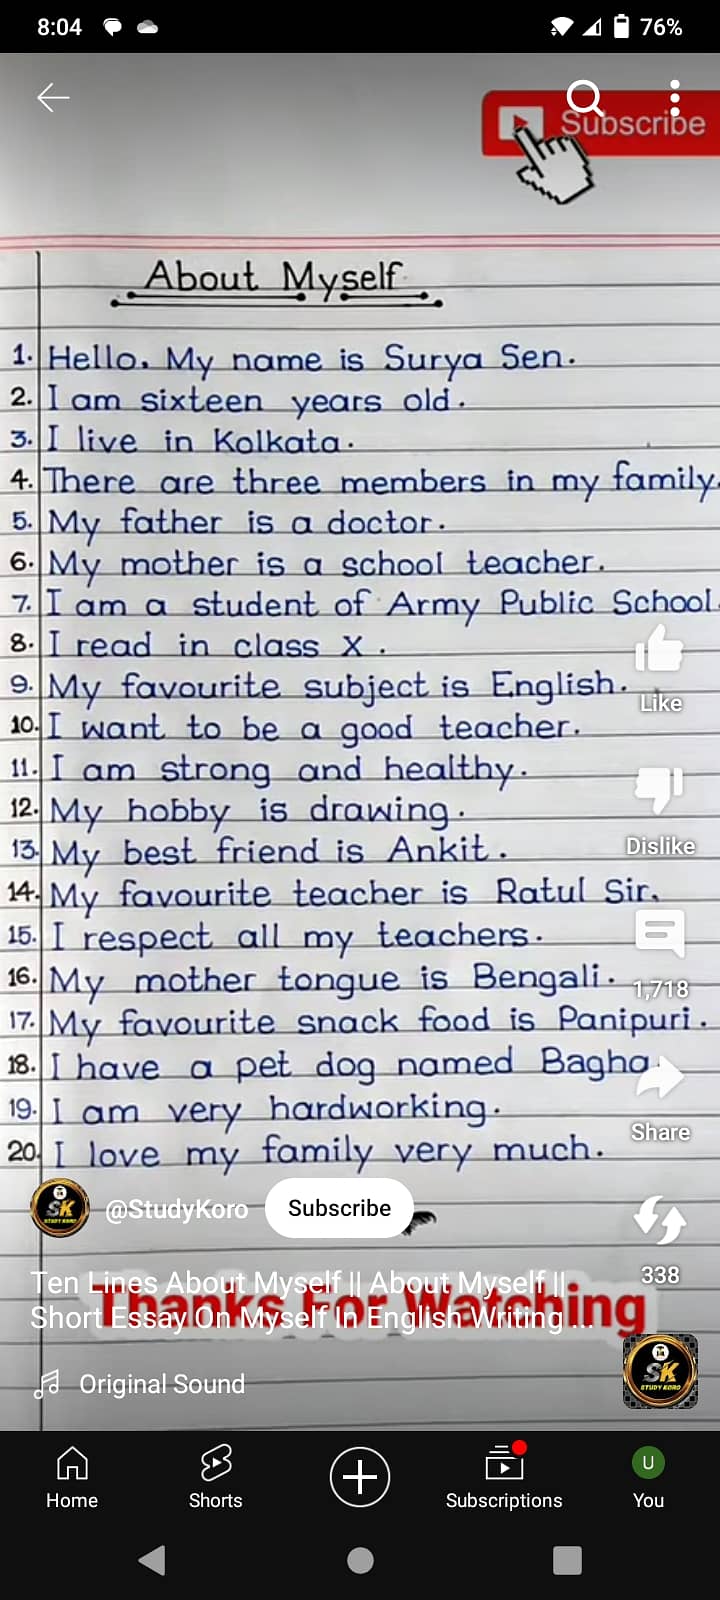 8:04
76%
Subscribe
About Myself
1. Hello. My name is Surya Sen.
2. I am sixteen years old.
3. I live in Kolkata.
4. There are three members in my family.
5. My father is a doctor.
6. My mother is a school teacher.
7. I am a student of Army Public School.
8. I read in class X.
9. My favourite subject is English.
Like
10. I want to be a good teacher.
11. I am strong and healthy.
12. My hobby is drawing.
13. My best friend is Ankit.
Dislike
14. My favourite teacher is Ratul Sir.
15. I respect all my teachers.
16. My mother tongue is Bengali.
1,718
17. My favourite snack food is Panipuri.
18. I have a pet dog named Bagha.
19. I am very hardworking.
Share
20. I love my family very much.
SK
STUDY KORO
@StudyKoro
Subscribe
338
Ten Lines About Myself || About Myself ||
Short Essay On Myself In English Writing ...
Thanks For Watching
SK
STUDY KORO
Original Sound
Home
Shorts
Subscriptions
U
You